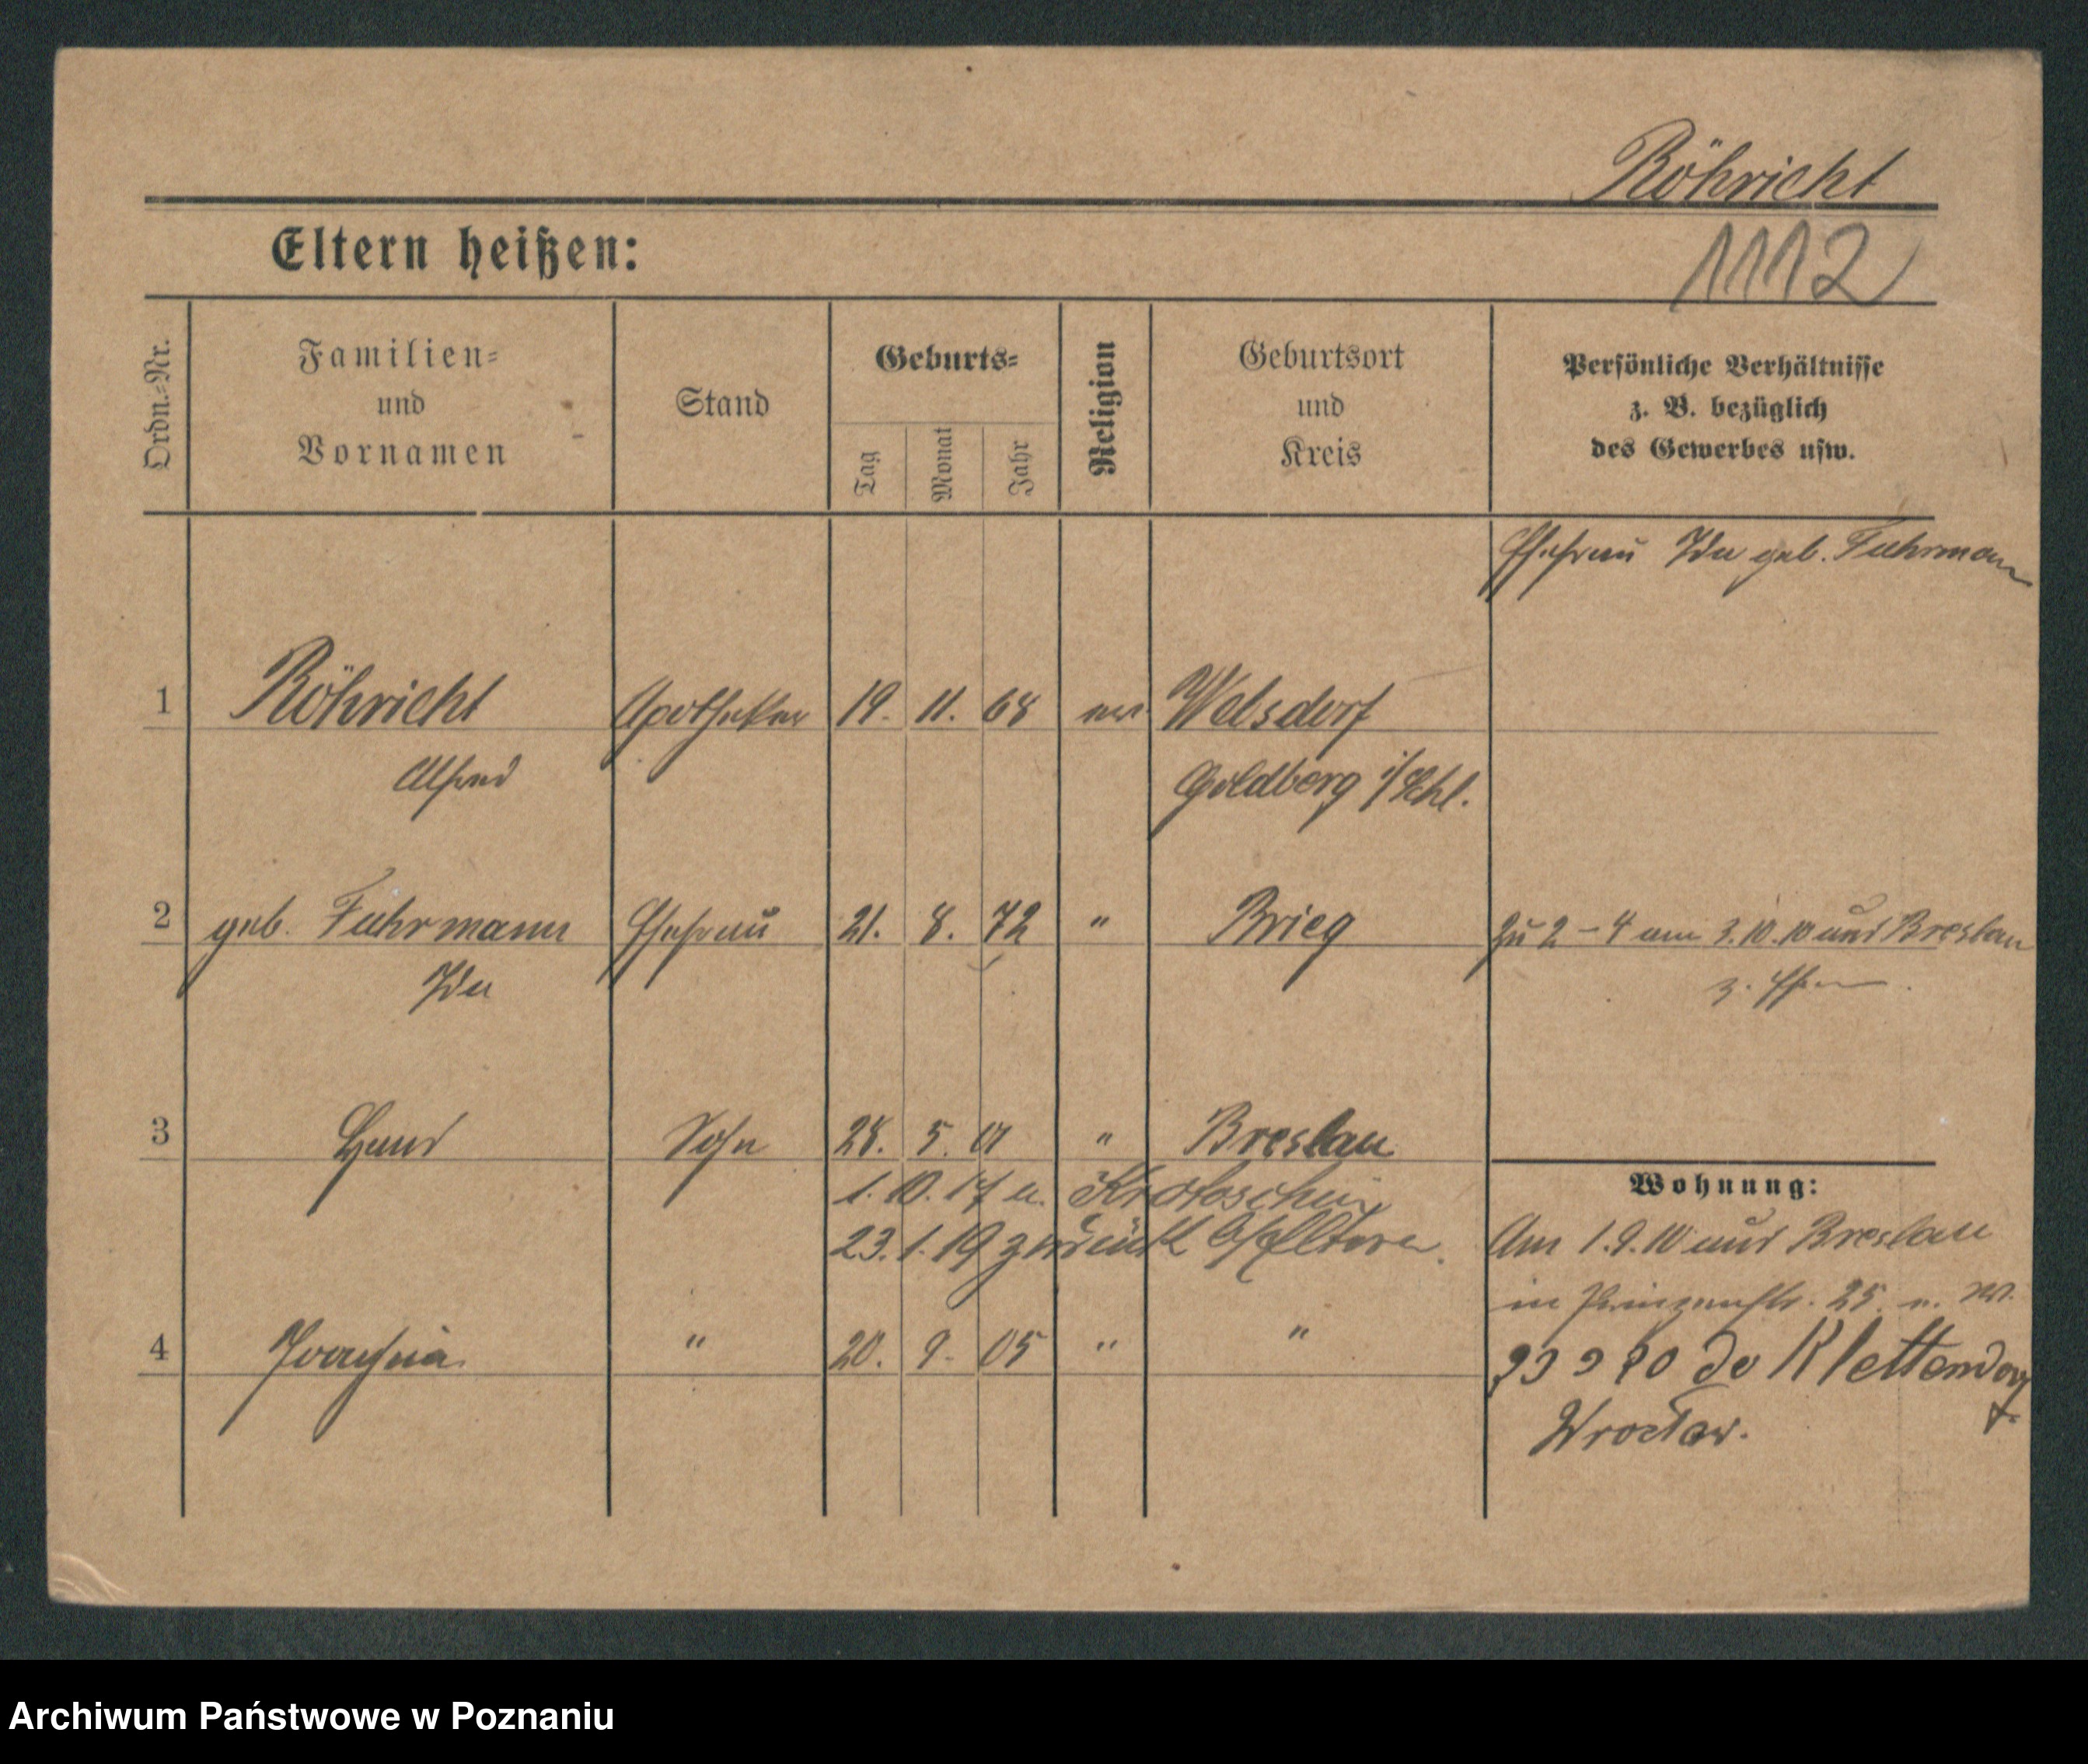 Röhricht
1112
Eltern heißen:
Ordn.-Nr.
Familien-
und
Vornamen
Stand
Geburts-
Tag
Monat
Jahr
Religion
Geburtsort
und
Kreis
Persönliche Verhältnisse
z. B. bezüglich
des Gewerbes usw.
Ehefrau Ida geb. Fuhrmann
1 Röhricht Apotheker 19. 11. 68 ev. Welsdorf
Alfred Goldberg i/Schl.
2 geb. Fuhrmann Ehefrau 21. 8. 72 " Brieg zu 2-4 am 3.10.10 aus Breslau
Ida z.
3 Hans Sohn 28. 5. 01 " Breslau
1. 10. 17 n. Krotoschin
23. 1. 19 zurück Eltern.
Wohnung:
Am 1.9.10 aus Breslau
in Prinzenstr. 25
4 Joachim " 20. 9. 05 " "
do Klettendorf
Wrocław.
Archiwum Państwowe w Poznaniu